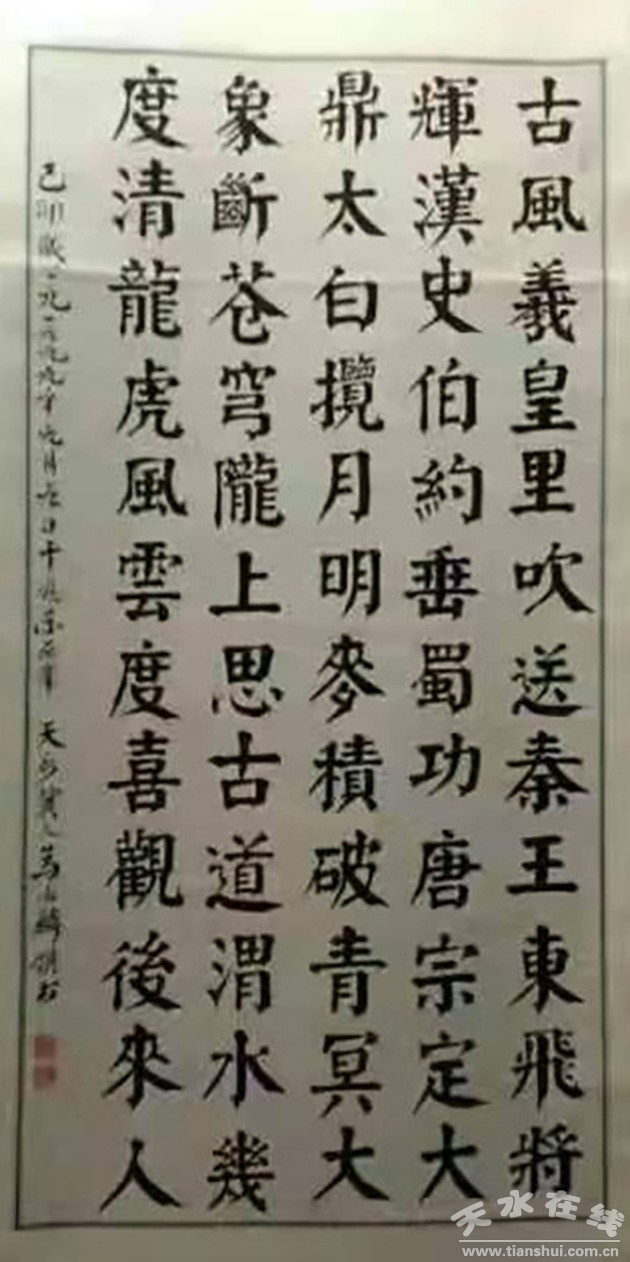 古風羲皇里吹送秦王東飛將
輝漢史伯約垂蜀功唐宗定大
鼎太白攬月明麥積破青冥大
象斷苍穹隴上思古道渭水幾
度清龍虎風雲度喜觀後來人
己卯歲一九九九年九月
天水在线
www.tianshui.com.cn